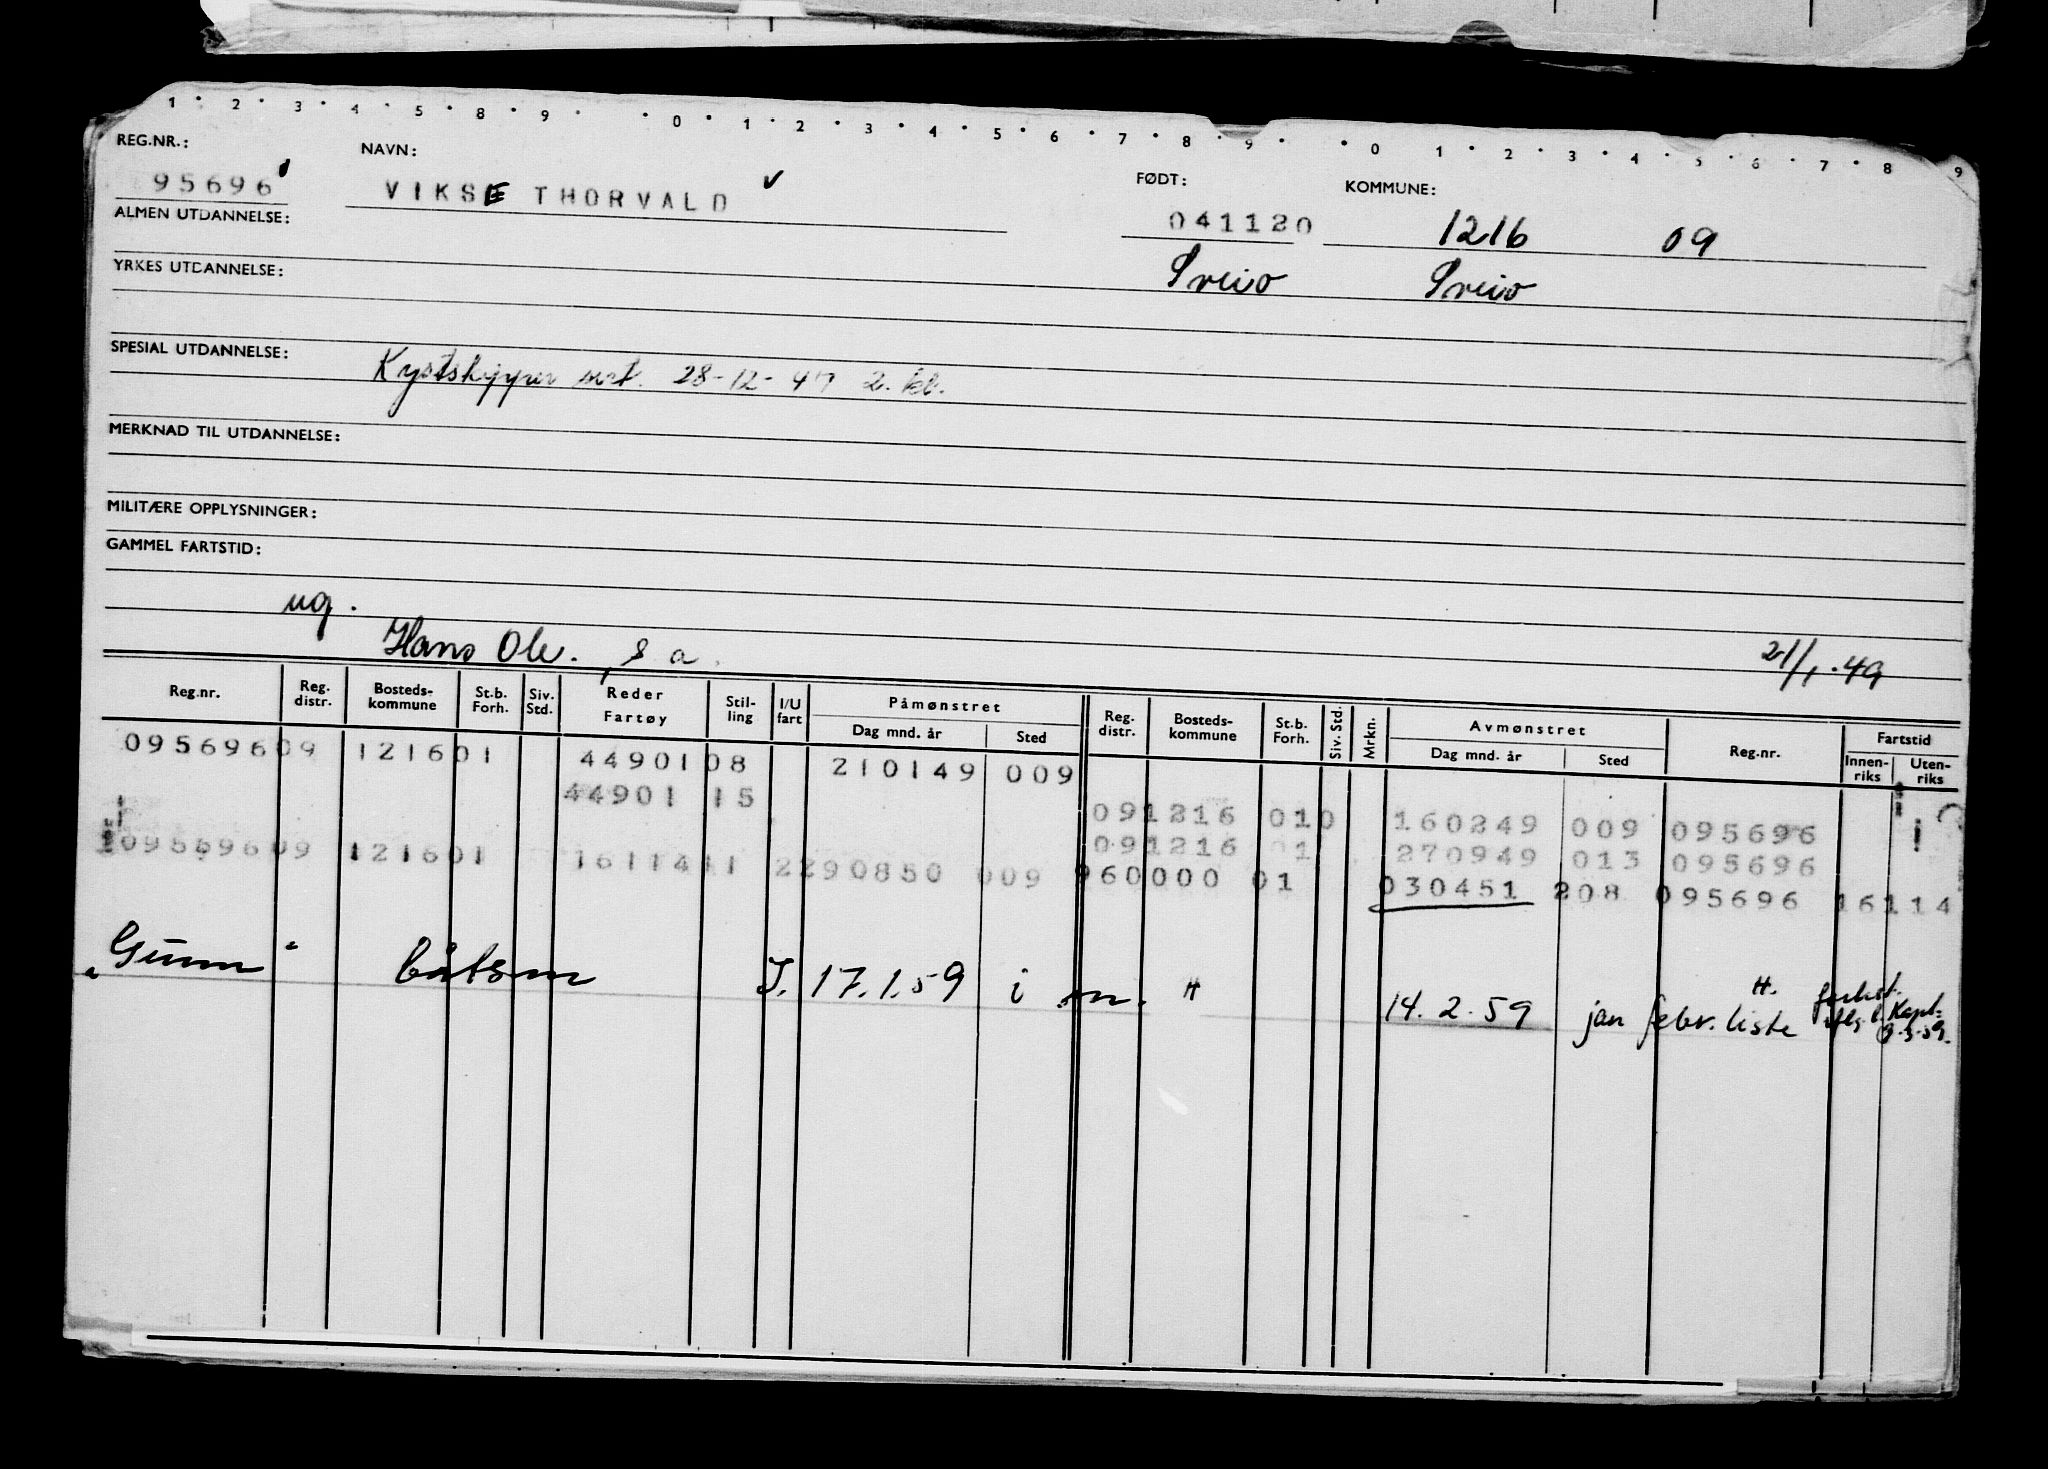 1 2 3 4 5 8 9 0 1 2 3 4 5 6 7 8 9 0 1 2 3 4 5 6 7 8 9
REG.NR.: NAVN: FØDT: KOMMUNE:
95696 VIKSE THORVALD 041120 1216 09
ALMEN UTDANNELSE:
Sveio Sveio
YRKES UTDANNELSE:
SPESIAL UTDANNELSE:
Kystskipper sert. 28-12-47 2. kl.
MERKNAD TIL UTDANNELSE:
MILITÆRE OPPLYSNINGER:
GAMMEL FARTSTID:
ug.
Hans Ole. s a. 21/1.49
Reg.nr. Reg. distr. Bosteds-kommune St.b. Forh. Siv. Std. Reder Fartøy Stil-ling I/U fart Påmønstret Dag mnd. år Sted Reg. distr. Bosteds-kommune St.b. Forh. Siv. Std. Mrkn. Avmønstret Dag mnd. år Sted Reg.nr. Fartstid Innen-riks Uten-riks
09569609 121601 4490108 210149 009
44901 15 091216 010 160249 009 095696
091216 01 270949 013 095696
09569609 121601 1611411 2290850 009 960000 01 030451 208 095696 16114
"Gunn" båtsm I. 17.1.59 i m. H 14.2.59 jan febr. liste H.